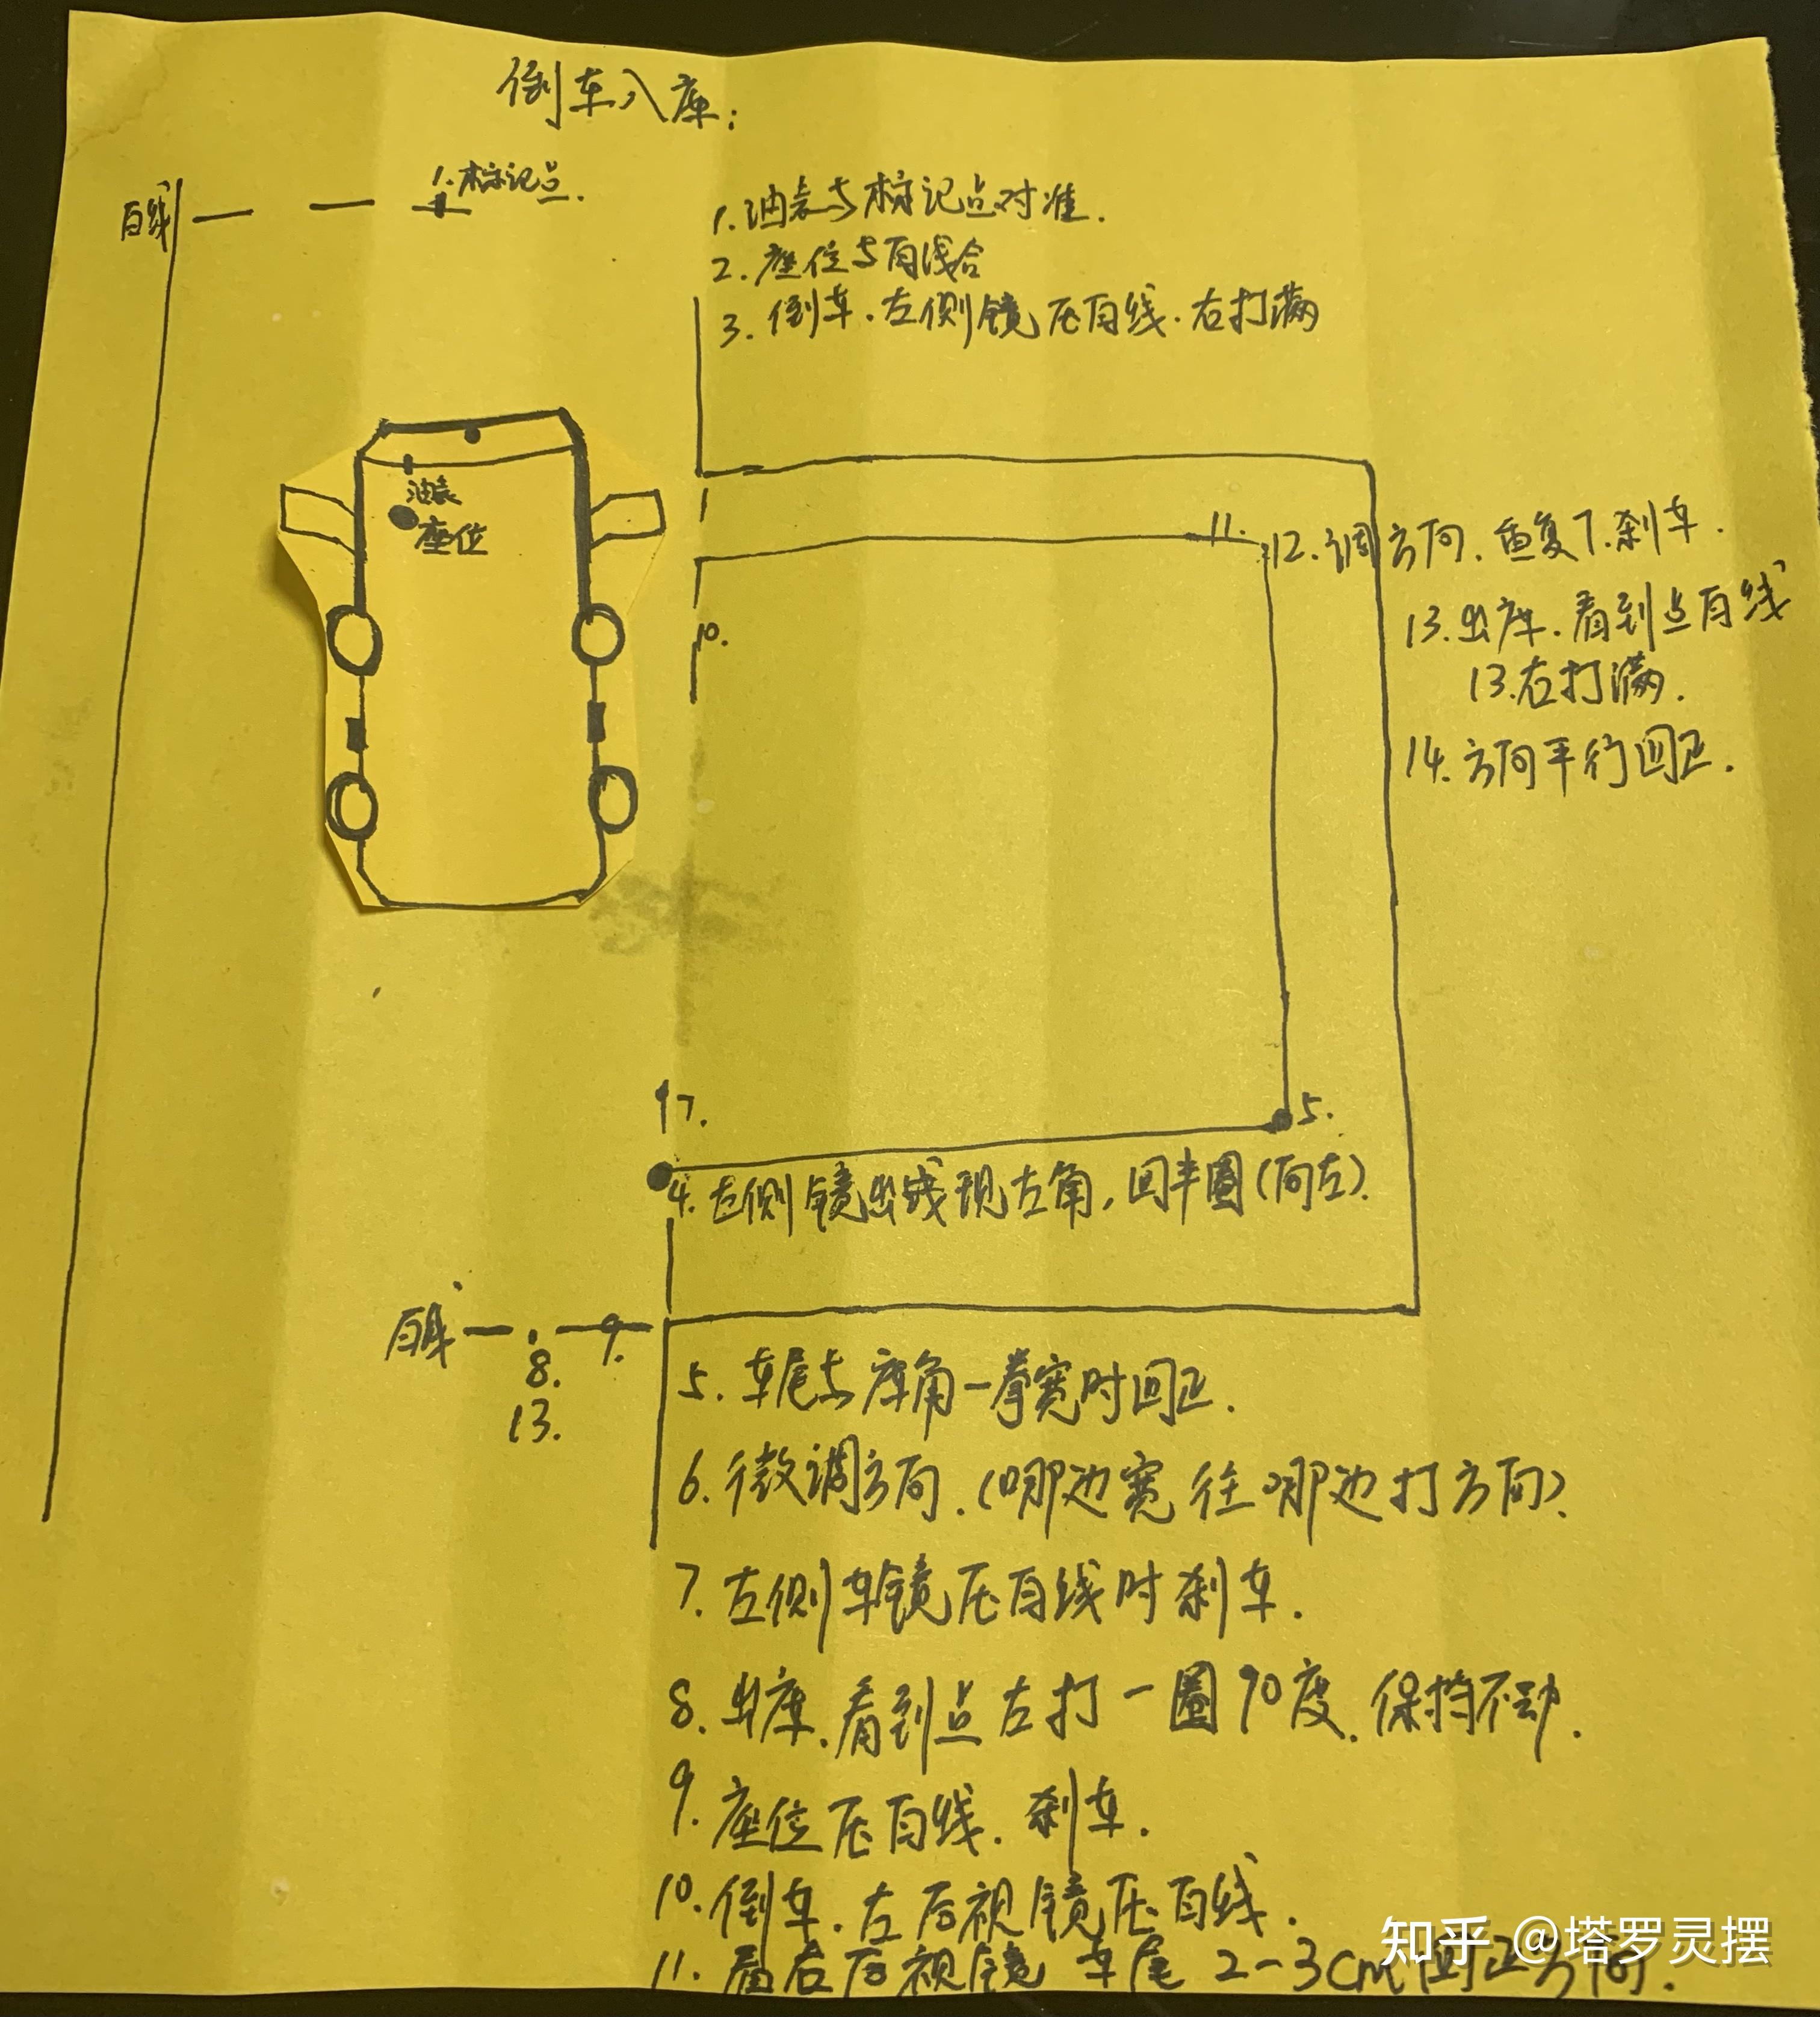 倒车入库:
1.标记点.
白线
1.油表与标记点对准.
2.座位与白线合
3.倒车.左侧镜压白线.右打满
油表
座位
1
11.
12.调方向.重复7.刹车.
13.出库.看到点白线
13.右打满.
14.方向平行回正.
10.
7.
5.
4.左侧镜出线现左角,回半圈(向左).
白线
8.
9.
13.
5.车尾与库角一拳宽时回正.
6.微调方向.(哪边宽往哪边打方向).
7.左侧车镜压白线时刹车.
8.出库.看到点左打一圈90度.保持不动.
9.座位压白线.刹车.
10.倒车.左后视镜压白线.
11.看右后视镜 车尾2-3cm回正方向.
知乎 @塔罗灵摆